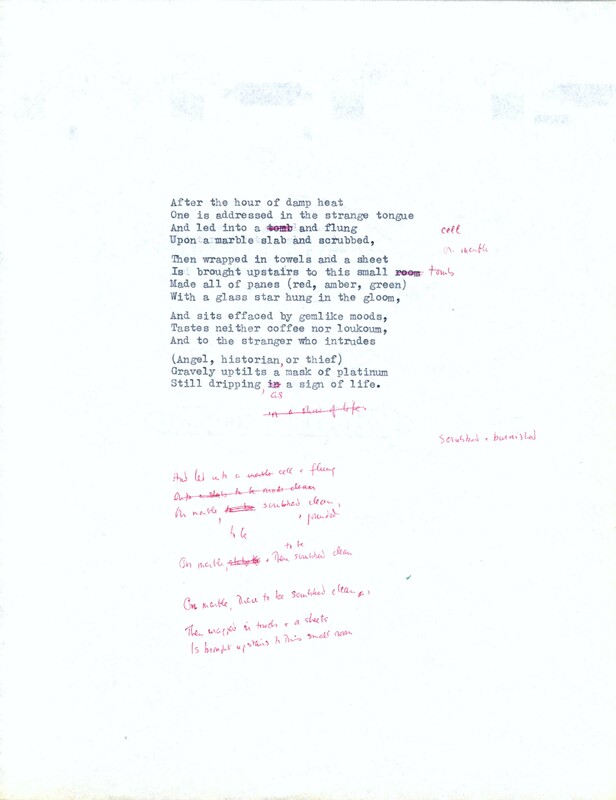 After the hour of damp heat
One is addressed in the strange tongue
And led into a tomb and flung
cell
Upon a marble slab and scrubbed,
on marble
Then wrapped in towels and a sheet
Is brought upstairs to this small room tomb
Made all of panes (red, amber, green)
With a glass star hung in the gloom,
And sits effaced by gemlike moods,
Tastes neither coffee nor loukoum,
And to the stranger who intrudes
(Angel, historian, or thief)
Gravely uptilts a mask of platinum
Still dripping, in a sign of life.
as
in a show of life.
Scrubbed + burnished
And led into a marble cell + flung
Onto a slab to be made clean
On marble to be scrubbed clean,
+ pounded
to be
to be
On marble, + then scrubbed clean
On marble, there to be scrubbed clean,
Then wrapped in towels + a sheets
Is brought upstairs to this small room